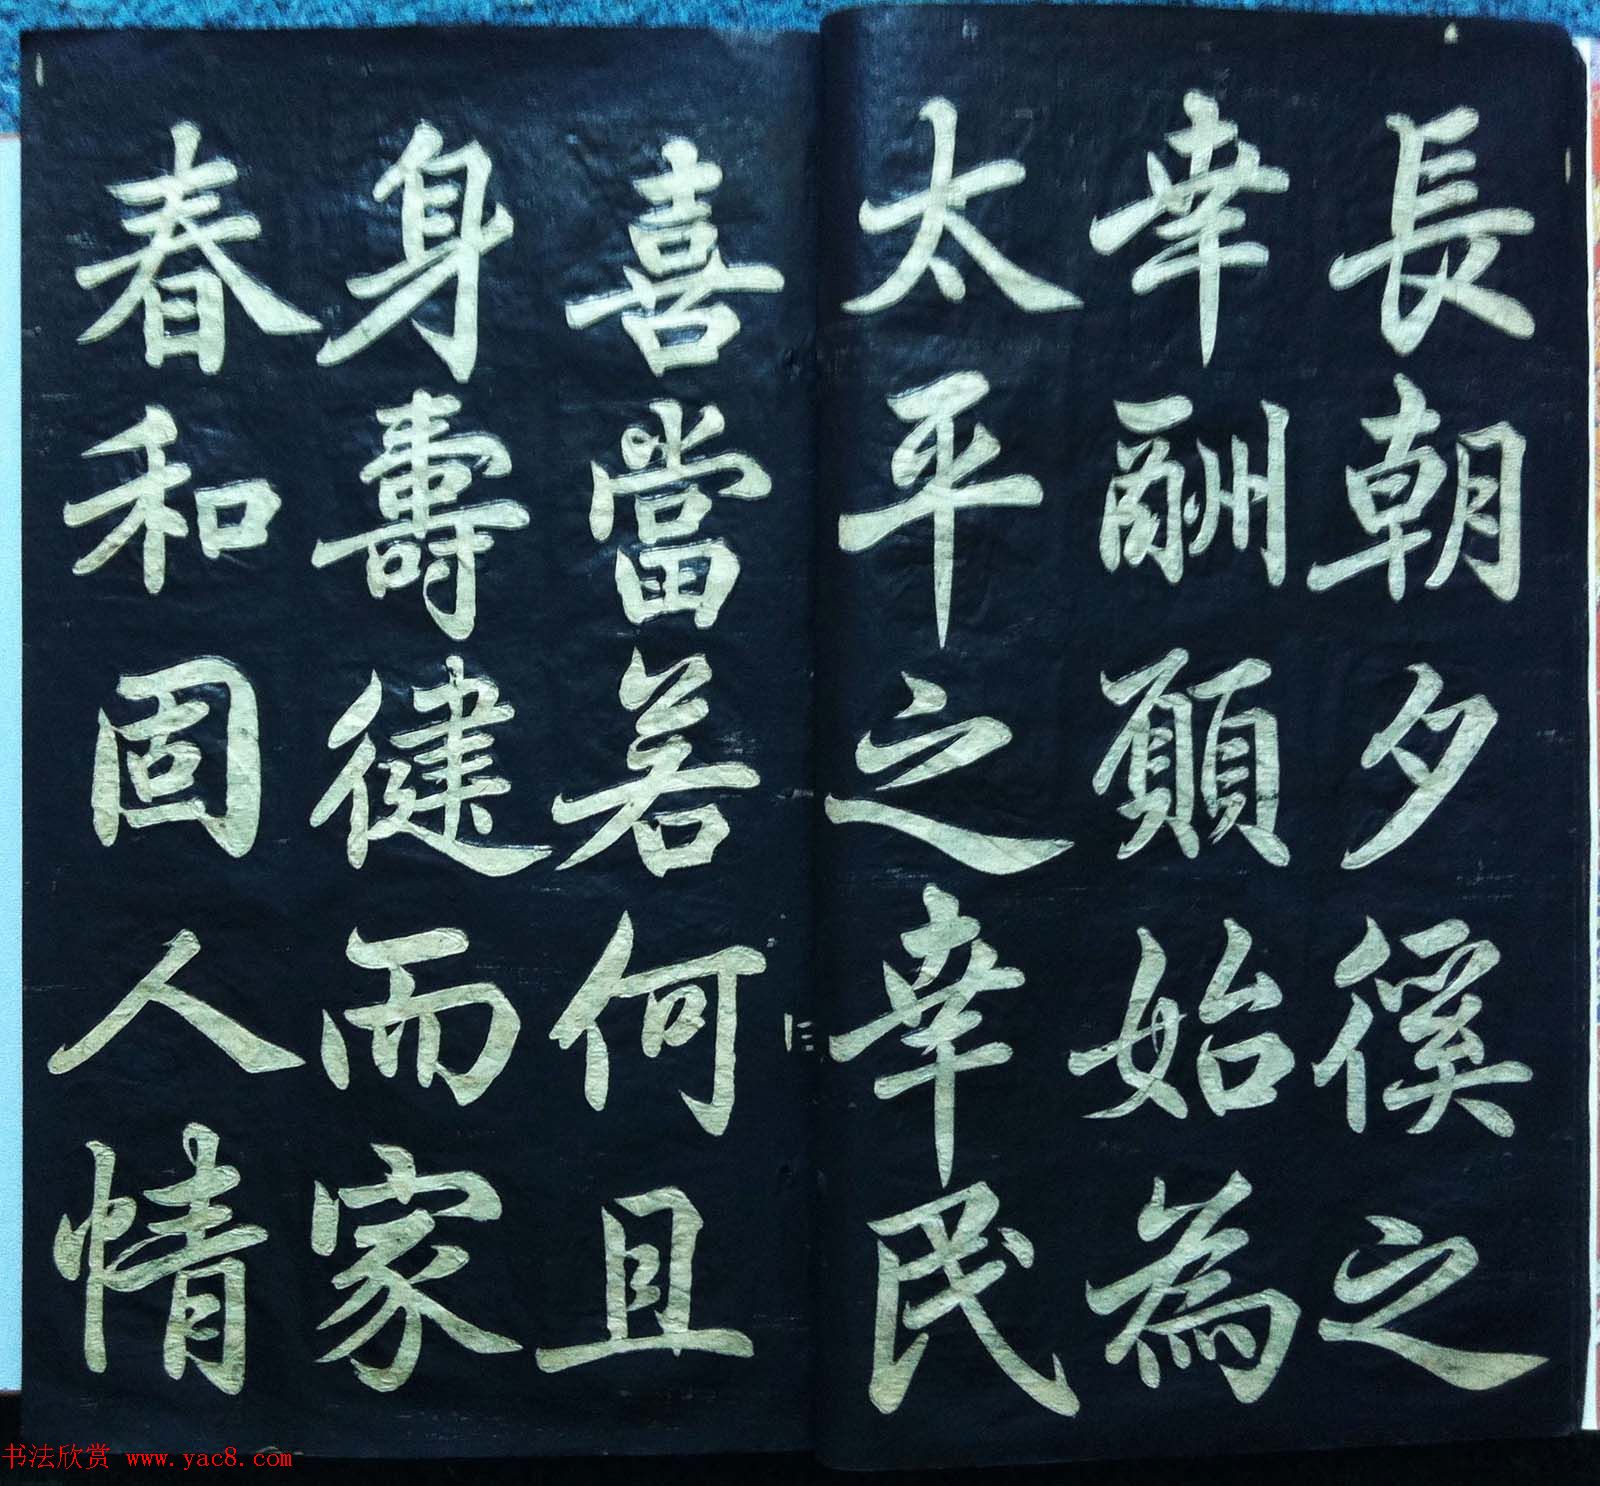 長朝夕徯之
幸酬願始為
太平之幸民
喜當若何且
身壽健而家
春和固人情
书法欣赏 www.yac8.com